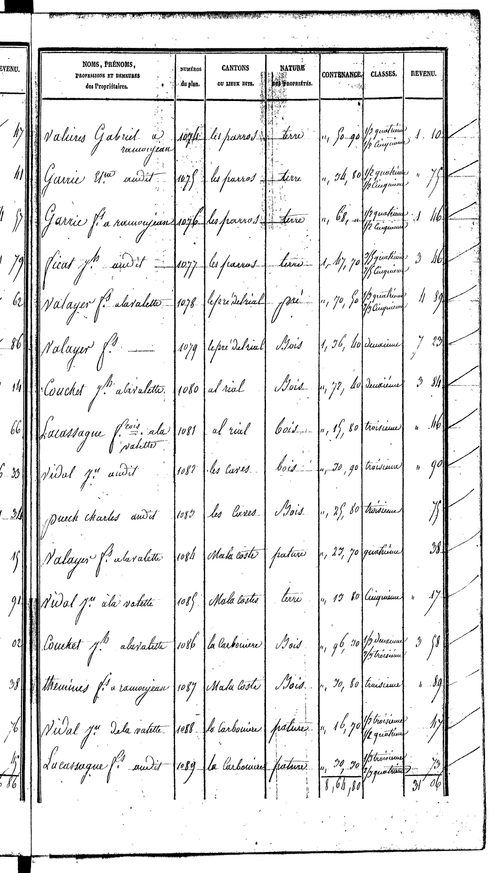 EVENU.
NOMS, PRÉNOMS, PROFESSIONS ET DEMEURES des Propriétaires. NUMÉROS du plan. CANTONS OU LIEUX DITS. NATURE DES PROPRIÉTÉS. CONTENANCE. CLASSES. REVENU.
Valieres Gabriel a ramonjean 1074 les parros terre ", 50 90 1/2 quatrieme 1/2 Cinquieme 1 10
Garrie audit 1075 les parros terre ", 34, 80 1/2 quatrieme 1/2 Cinquieme " 75
Garrie fs a ramonjean 1076 les parros terre ", 68, " 1/2 quatrieme 1/2 Cinquieme 1 46
ficat jh audit 1077 les parros terre 1, 47, 70 quatrieme Cinquieme 3 46
Valayer fs alavalette 1078 le pré delrial pré ", 70, 50 4 89
Valayer fs — 1079 le pré delrial Bois 1, 36, 40 deuxieme 7 23
Couchet jh alavalette 1080 al rial Bois ", 72, 40 deuxiéme 3 84
Lacassague fcois ala valette 1081 al rial bois ", 15, 80 troisieme " 46
Vidal jn audit 1082 les Caves bois ", 30, 90 troisieme " 90
pueck charles audit 1083 les Caves Bois ", 25, 80 troisieme 75
Valayer fs alavalette 1084 Mala Coste pature ", 23, 70 quatrieme 38
Vidal jn ala valette 1085 Mala Costes terre ", 13 80 Cinquieme " 17
Couchet jh alavalette 1086 la Carboniere Bois ", 96, 30 1/2 deuxieme 1/2 troisieme 3 58
themines fs a ramonjean 1087 Mala Coste Bois ", 30, 80 troisieme " 89
Vidal jn dela valette 1088 la carboniere pature ", 16, 70 1/2 troisieme 1/2 quatrieme 47
Lacassague fs audit 1089 la Carboniere pature ", 30, 30 troisieme quatrieme 73
8, 64, 80 31 06